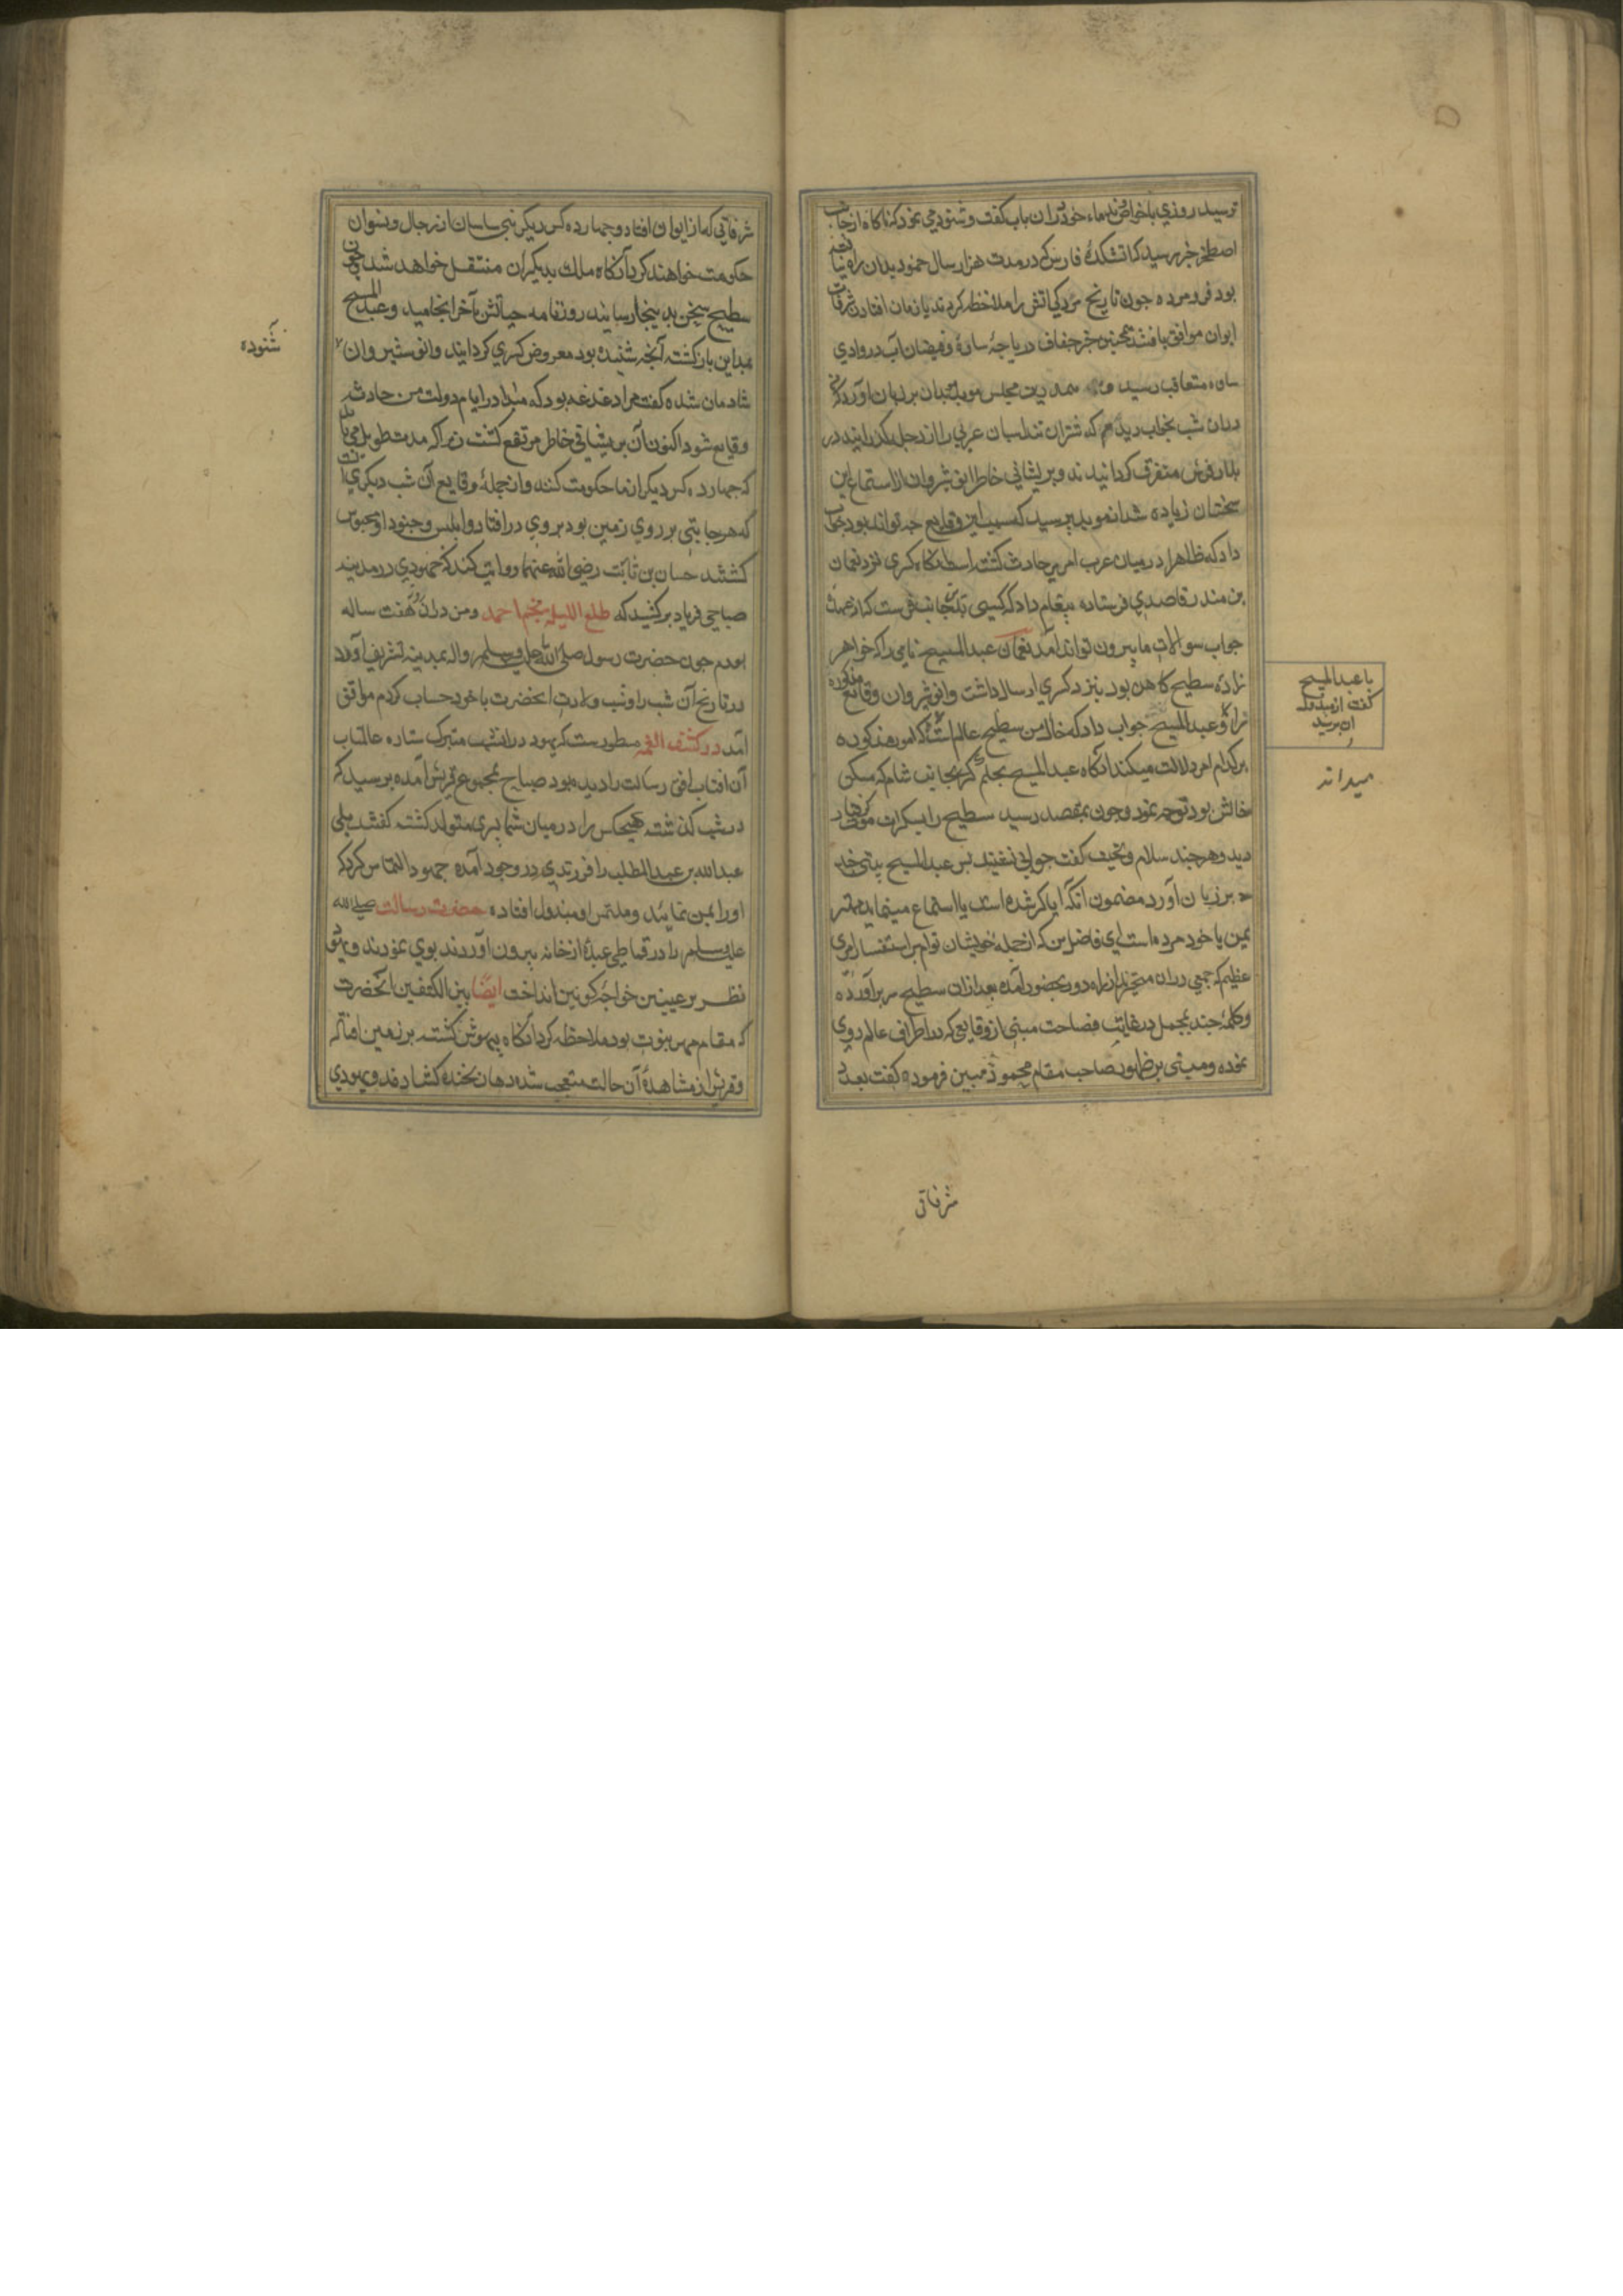 ترسید روزی با خواص و ندماء خود دران باب گفت و شنودی می نمود که ناکاه از جانب
اصطخر خبر رسید که آتشکدهٔ فارس که در مدت هزار سال خمود بدان راه نیافته
بود فرو مرده چون تاریخ مردن آتش را ملاحظه کردند با زمان افتادن شرفات
ایوان موافق یافتند همچنین خبر جفاف دریاچهٔ ساوه و فیضان آب در وادی
ساوه متعاقب رسید و هم درین مجلس موبد موبدان بر زبان آورد که
دران شب بخواب دیدم که شتران تند اسبان عربی را از دجله گذرانیدند در
بلاد فرس متفرق کردانیدند و پریشانی خاطر انوشیروان از استماع این
سخنان زیاده شد از موبد پرسید که سبب این وقایع چه تواند بود جواب
داد که ظاهرا در میان عرب امری حادث کشت است آنکاه کسری نزد نعمان
بن منذر قاصدی فرستاده پیغام داد که کسی بدین جانب فرست که از عهدهٔ
جواب سوالات ما بیرون تواند آمد نعمان عبدالمسیح نامی را که خواهر
زادهٔ سطیح کاهن بود بنزد کسری ارسال داشت و انوشیروان وقایع مذکوره
با عبدالمسیح
گفت از
پرسید
عبدالمسیح جواب داد که خال من سطیح عالم است که امور مذکوره
بر کدام امر دلالت میکند آنگاه عبدالمسیح بحکم کسری بجانب شام که مسکن
میداند
خالش بود توجه نمود و چون بمقصد رسید سطیح را بسکرات موت گرفتار
دید و هر چند سلام و تحیت گفت جوابی نشنید پس عبدالمسیح بیتی چند
بر زبان آورد مضمون آنکه آیا کر شده است یا استماع مینماید مهتر
یمن یا خود مرده است ای فاضل من که از جمله خویشان توام برای استفسار امری
عظیم که جمعی دران متحیرند از راه دور بحضور آمده بعد ازان سطیح سر برآورده
و کلمهٔ چند مجمل در غایت فصاحت مبنی از وقایعی که در اطراف عالم روی
نموده و مبتنی بر ظهور صاحب مقام محمود مبین فرموده گفت بعدد
شرفاتی
شرفاتی که از ایوان افتاد و چهارده کس دیگر از بنی ساسان از رجال و نسوان
حکومت خواهند کرد آنکاه ملک بدیگران منتقل خواهد شد چون
سطیح سخن بدینجا رسانید روزنامه حیاتش بآخر انجامید و عبدالمسیح
بمداین بازگشته آنچه شنیده بود معروض کسری کردانید و انوشیروان
شنوده
شادمان شده گفت مرا دغدغه بود که مبادا در ایام دولت من حادثه
وقایع شود اکنون آن پریشانی خاطر مرتفع کشت زیرا که مدت طویل می باید
که چهارده کس دیگر از ما حکومت کنند و از جملهٔ وقایع آن شب دیگری آنست
که هر جا بتی بر روی زمین بود بروی در افتاد و ابلیس و جنود او محبوس
کشتند حسان بن ثابت رضی الله عنهما روایت کند که جهودی در مدینه
صباحی فریاد برکشید که طلع اللیلة نجم احمد و من دران هفت ساله
بودم چون حضرت رسول صلی الله علیه وسلم واله بمدینه تشریف آورد
در تاریخ آن شب را و شب ولادت آنحضرت با خود حساب کردم موافق
آمد در کشف الغمه مسطورست که یهود دران شب متبرک ستاره عالمتاب
آن آفتاب افق رسالت را دیده بود صباح بمجمع قریش آمده پرسید که
در شب گذشته هیچکس را در میان شما پسری متولد کشته گفتند بلی
عبدالله بن عبدالمطلب را فرزندی در وجود آمده جهود التماس کرد که
او را بمن نمایند و ملتمس او مبذول افتاده حضرت رسالت صلی الله
علیه وسلم را در قماطی عبد از خانه بیرون آوردند بوی نمودند و یهود
نظر بر عینین خواجهٔ کونین انداخت ایضا بین الکتفین آنحضرت
که مقام مهر نبوت بود ملاحظه کرد آنکاه بیهوش کشته بر زمین افتاد
و قریش از مشاهدهٔ آن حالت متعجب شده دهان بخنده کشادند و یهودی